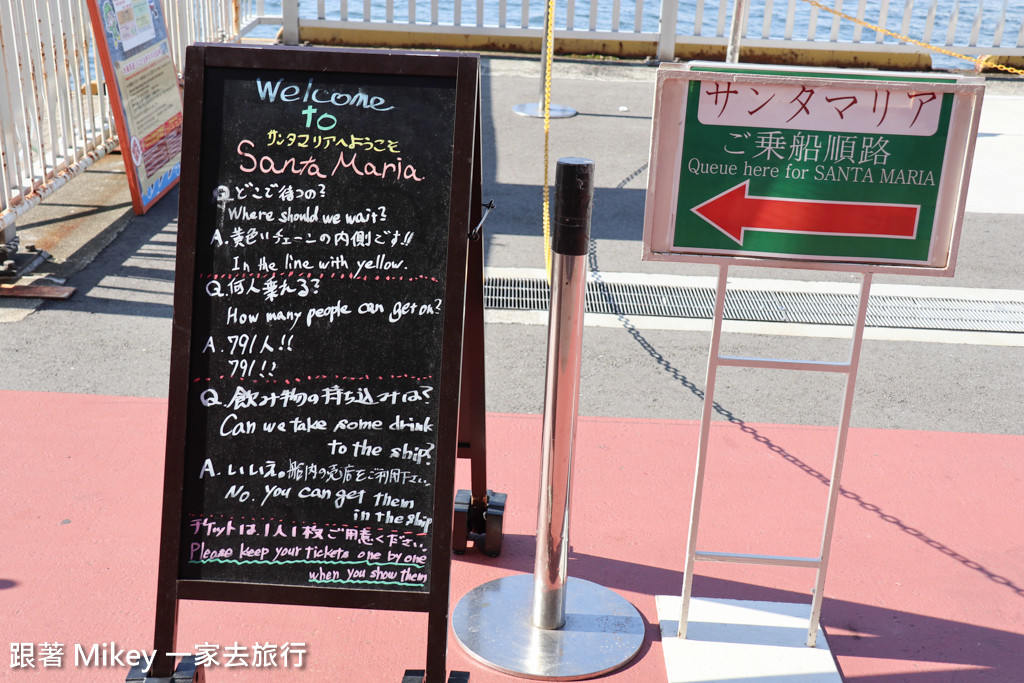 Welcome
to
サンタマリアへようこそ
Santa Maria
Q.どこで待つの?
Where should we wait?
A.黄色いチェーンの内側です!!
In the line with yellow.
Q.何人乗れる?
How many people can get on?
A.791人!!
791!!
Q.飲み物の持ち込みは?
Can we take some drink
to the ship?
A.いいえ。船内の売店をご利用下さい。
No. you can get them
in the ship
チケットは1人1枚ご用意ください。
Please keep your tickets one by one
when you show them
サンタマリア
ご乗船順路
Queue here for SANTA MARIA
跟著 Mikey 一家去旅行